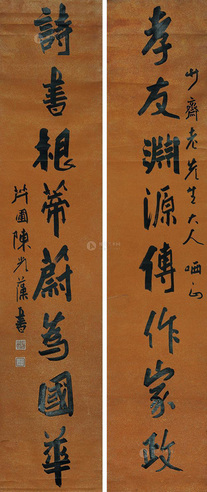 少齋老先生大人哂正
孝友淵源傳作家政
詩書根蒂蔚為國華
陳光藻書